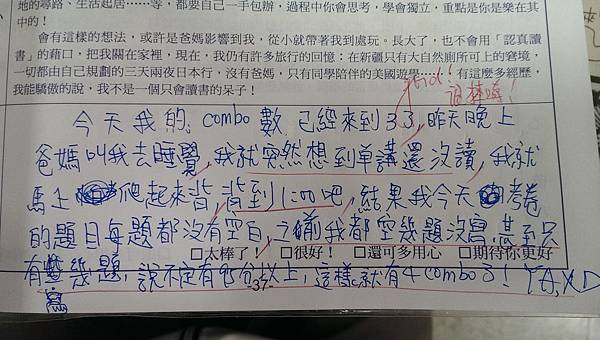 地的尋路，生活起居……等，都要自己一手包辦，過程中你會思考，學會獨立，重點是你是樂在其
中的！
會有這樣的想法，或許是爸媽影響到我，從小就帶著我到處玩。長大了，也不會用「認真讀
書」的藉口，把我關在家裡，現在，我仍有許多旅行的回憶：在新疆只有大自然廁所可上的窘境，
一切都由自己規劃的三天兩夜日本行，沒有爸媽，只有同學陪伴的美國遊學……！有這麼多經歷，
我能驕傲的說，我不是一個只會讀書的呆子！
今天我的 combo數 已經來到33，昨天晚上
爸媽叫我去睡覺，我就突然想到單講還沒讀，我就
馬上爬起來背，背到1:00吧，結果我今天考卷
的題目每題都沒有空白，之前我都空幾題沒寫，甚至只
□太棒了！ □很好！ □還可多用心 □期待你更好
有寫幾題，說不定有95分以上，這樣就有4 combo了！YA, XD
-37-